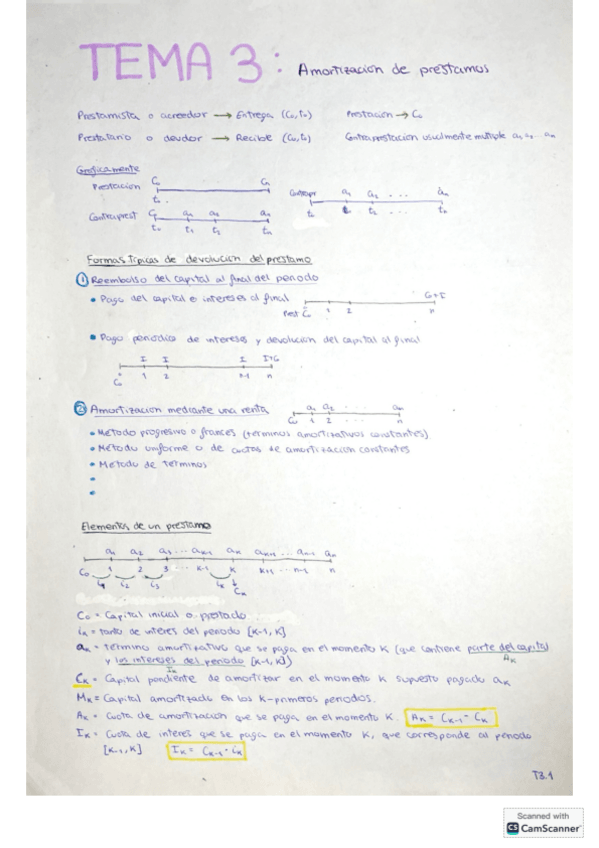 TEMA 3: Amortización de préstamos
Prestamista o acreedor → Entrega (C₀, t₀) Prestación → C₀
Prestatario o deudor → Recibe (C₀, t₀) Contraprestación usualmente multiple a₁ a₂ ... aₙ
Gráficamente
Prestación C₀ Cₙ
t₀
Contrapr a₁ a₂ ... aₙ
t₀ t₂ ... tₙ
Contraprest C₀ a₁ a₂ aₙ
t₀ t₁ t₂ tₙ
Formas típicas de devolución del préstamo
① Reembolso del capital al final del periodo
• Pago del capital e intereses al final C₀+I
Prest C₀ 1 2 n
• Pago periódico de intereses y devolución del capital al final
I I I I+C₀
C₀ 1 2 n-1 n
② Amortización mediante una renta a₁ a₂ ... aₙ
C₀ 1 2 n
• Método progresivo o francés (términos amortizativos constantes)
• Método uniforme o de cuotas de amortización constantes
• Método de términos
•
•
Elementos de un préstamo
a₁ a₂ a₃ ... aₖ₋₁ aₖ aₖ₊₁ ... aₙ₋₁ aₙ
C₀ 1 2 3 ... k-1 k k+1 ... n-1 n
i₁ i₂ i₃ iₖ
Cₖ
C₀ = Capital inicial o prestado
iₖ = tanto de interés del periodo [k-1, k]
aₖ = término amortizativo que se paga en el momento k (que contiene parte del capital
Aₖ
y los intereses del periodo [k-1, k])
Iₖ
Cₖ = Capital pendiente de amortizar en el momento k supuesto pagado aₖ
Mₖ = Capital amortizado en los k-primeros periodos.
Aₖ = Cuota de amortización que se paga en el momento k. Aₖ = Cₖ₋₁ - Cₖ
Iₖ = Cuota de interés que se paga en el momento k, que corresponde al periodo
[k-1, k] Iₖ = Cₖ₋₁ · Cₖ
T3.1
Scanned with
CS CamScanner